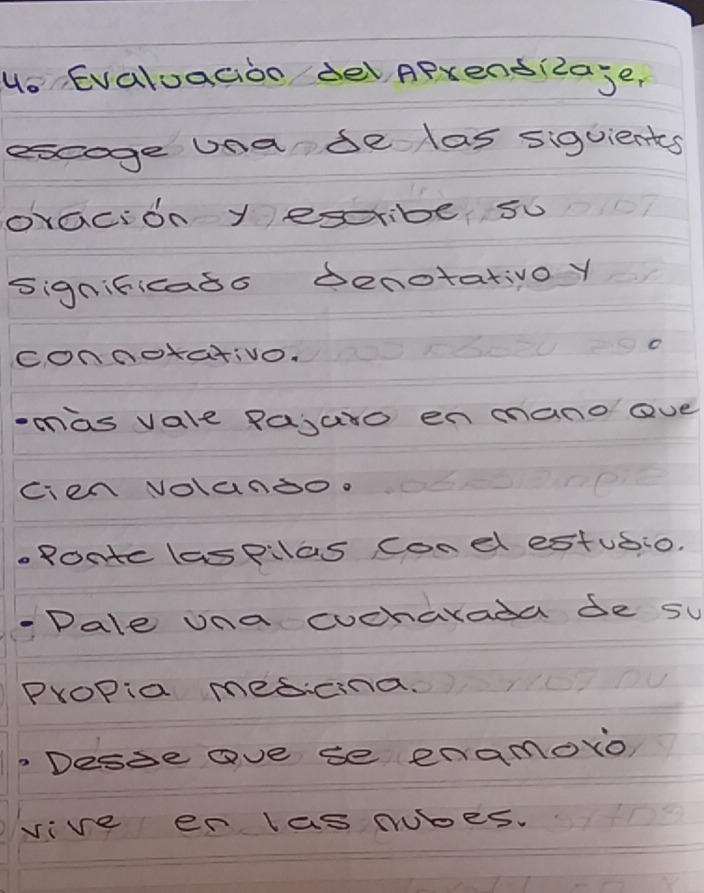 4. Evaluación del Aprendizaje.
escoge una de las siguientes
oración y escribe su
significado denotativo y
connotativo.
•màs vale Pajaro en mano Que
cien volando.
•Ponte las pilas con el estudio.
•Dale una cucharada de su
propia medicina.
•Desde que se enamorò
vive en las nubes.